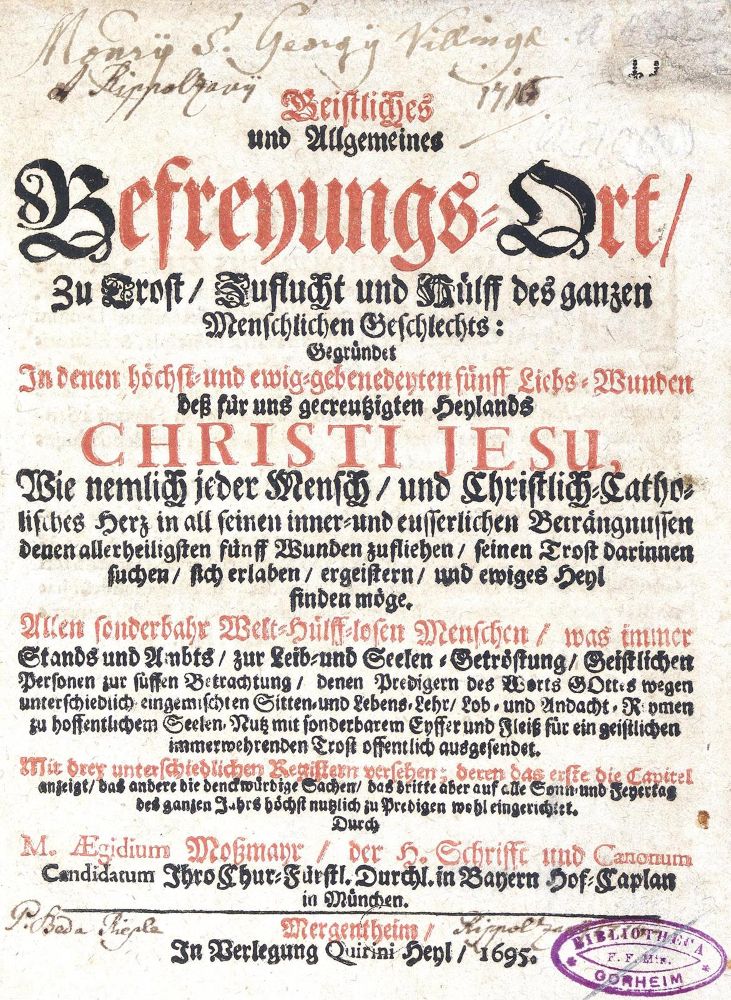 Monrÿ S. Georgÿ Villingæ
Rippolzavÿ
Geistliches
und Allgemeines
Befreyungs-Ort/
Zu Trost/ Zuflucht und Hülff des ganzen
Menschlichen Geschlechts:
Gegründet
In denen höchst-und ewig-gebenedeyten fünff Liebs-Wunden
deß für uns gecreutzigten Heylands
CHRISTI JESU,
Wie nemlich jeder Mensch/ und Christlich-Catho-
lisches Herz in all seinen inner-und eusserlichen Beträngnussen
denen allerheiligsten fünff Wunden zufliehen/ seinen Trost darinnen
suchen/ sich erlaben/ ergeistern/ und ewiges Heyl
finden möge.
Allen sonderbahr Welt-Hülff-losen Menschen/ was immer
Stands und Ambts/ zur Leib-und Seelen-Getröstung/ Geistlichen
Personen zur süssen Betrachtung/ denen Predigern des Worts GOttes wegen
unterschiedlich eingemischten Sitten-und Lebens-Lehr/ Lob- und Andacht-Reymen
zu hoffentlichem Seelen-Nutz mit sonderbarem Eyffer und Fleiß für ein geistlichen
immerwehrenden Trost offentlich ausgesendet.
Mit drey unterschiedlichen Registern versehen; deren das erste die Capitel
anzeigt/ das andere die denckwürdige Sachen/ das dritte aber auf alle Sonn-und Feyertag
des ganzen Jahrs höchst nutzlich zu Predigen wohl eingerichtet.
Durch
M. Ægidium Moßmayr/ der H. Schrifft und Canonum
Candidatum Ihro Chur-Fürstl. Durchl. in Bayern Hof-Caplan
in München.
P. Beda
Mergentheim/
In Verlegung Quirini Heyl/ 1695.
BIBLIOTHECA
F. F. Min.
GORHEIM